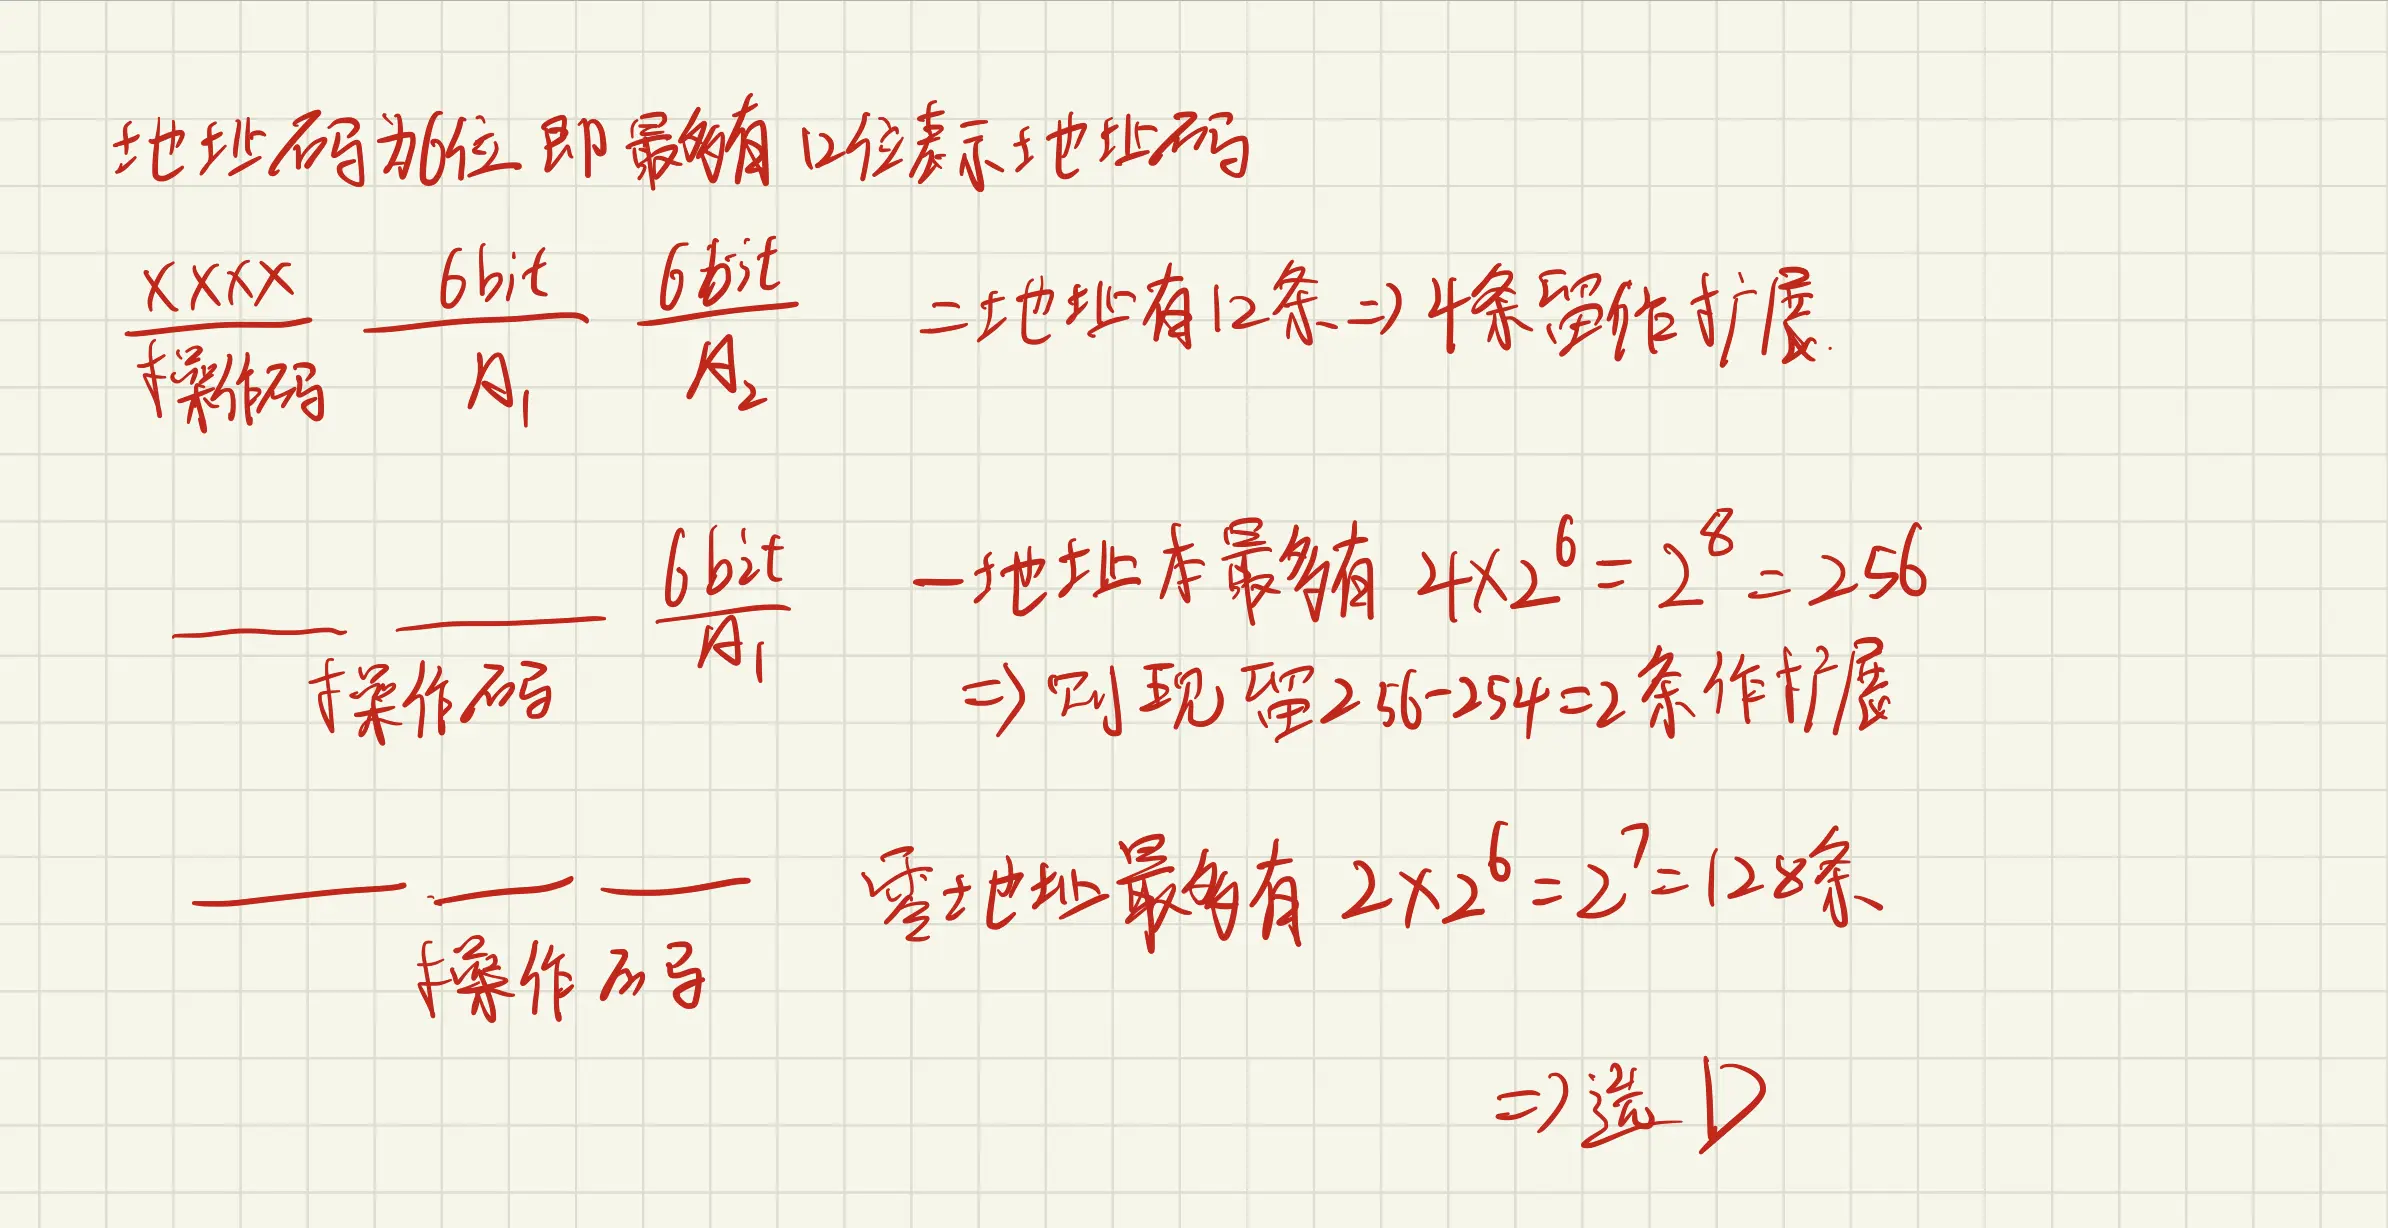 地址码为6位 即最多有12位表示地址码
xxxx 6bit 6bit 二地址有12条 ⇒ 4条留作扩展.
操作码 A₁ A₂
6bit 一地址本最多有 4×2⁶ = 2⁸ = 256
操作码 A₁ ⇒ 则现留256-254=2条作扩展
零地址最多有 2×2⁶ = 2⁷ = 128条
操作码
⇒ 选 D